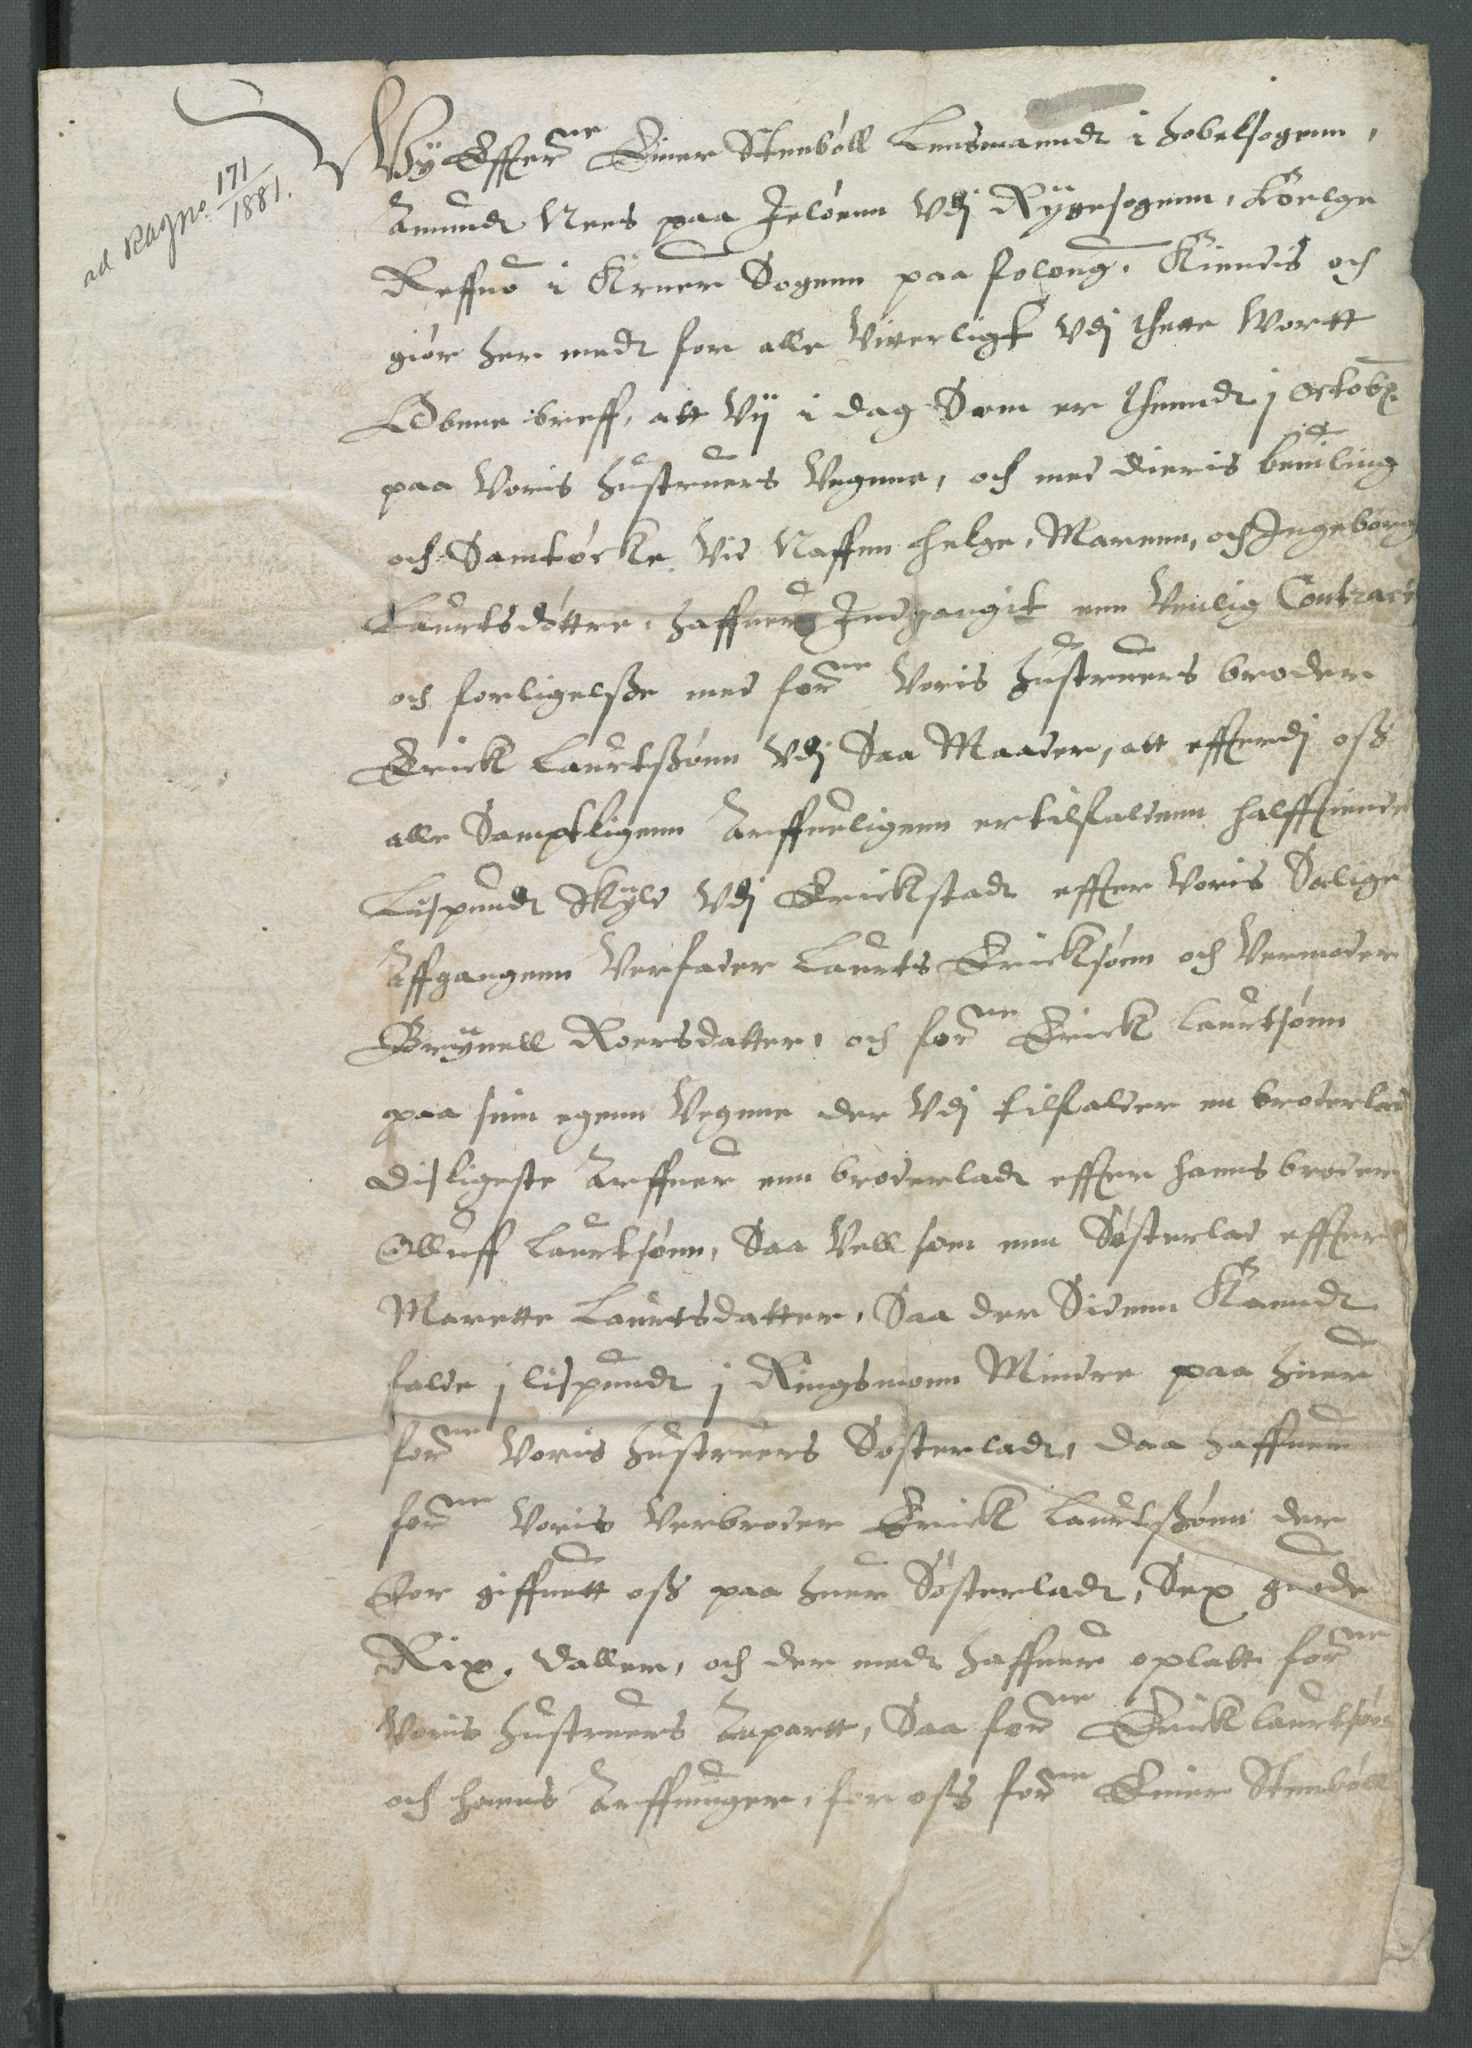 ad Ragno. 171/1881.
Wÿ Effterne Einer Stenböll Lensmandt i Hobelsogenn,
Amundt Nees paa Jelöenn Vdj Rÿgesogenn, Torlge
Reffnö i Krner Sogenn paa folong, Kiendis och
giör her medt for alle Vitterligt Vdj thette Wortt
Obene breff, att Vij i dag Som er thendt j octobr.
paa Voris Hustruers Vegnne, och med dieris beuiling
och Samtöcke Vid Naffnn Helge, Marenn, och Ingeborg
Laurtsdöttre, haffuer Indgangit enn Venlig Contract
och forligelsze med forne Voris Hustruers broder
Erick Laurtszönn Vdj Saa Maader, att effterdj osz
alle Samptligenn Arffueligenn er tilfaldenn halffttiende
Lispundt Skyld Vdj Erickstadt effter Voris Salige
Affgangenn Verfader Laurts Ericksönn och Vermoder
Grÿnell Roersdatter, och forne Erick Laurtsönn
paa sinn egenn Vegnne der Vdj tilfalder en broderlod
disligeste Arffuer enn broderladt effter hanns broder
Olluff Laurtsönn, Saa Vell som enn Sösterlad effter
Marette Laurtsdatter, Saa der Sidenn Kanndt
falde j lispundt j Ringsmonn Mindre paa huer
forne Voris Hustruers Sösterladt, daa haffuer
forne Voris Verbroder Erick Laurtszönn der
for giffuett osz paa huer Sösterladt, Sex guode
Rix. daller, och der medt haffuer oplatt forne
Voris Hustruers Anpartt, Saa forne Erick Laurtsön
och hanns Arffuinger, for osz forne Einer Stenböll